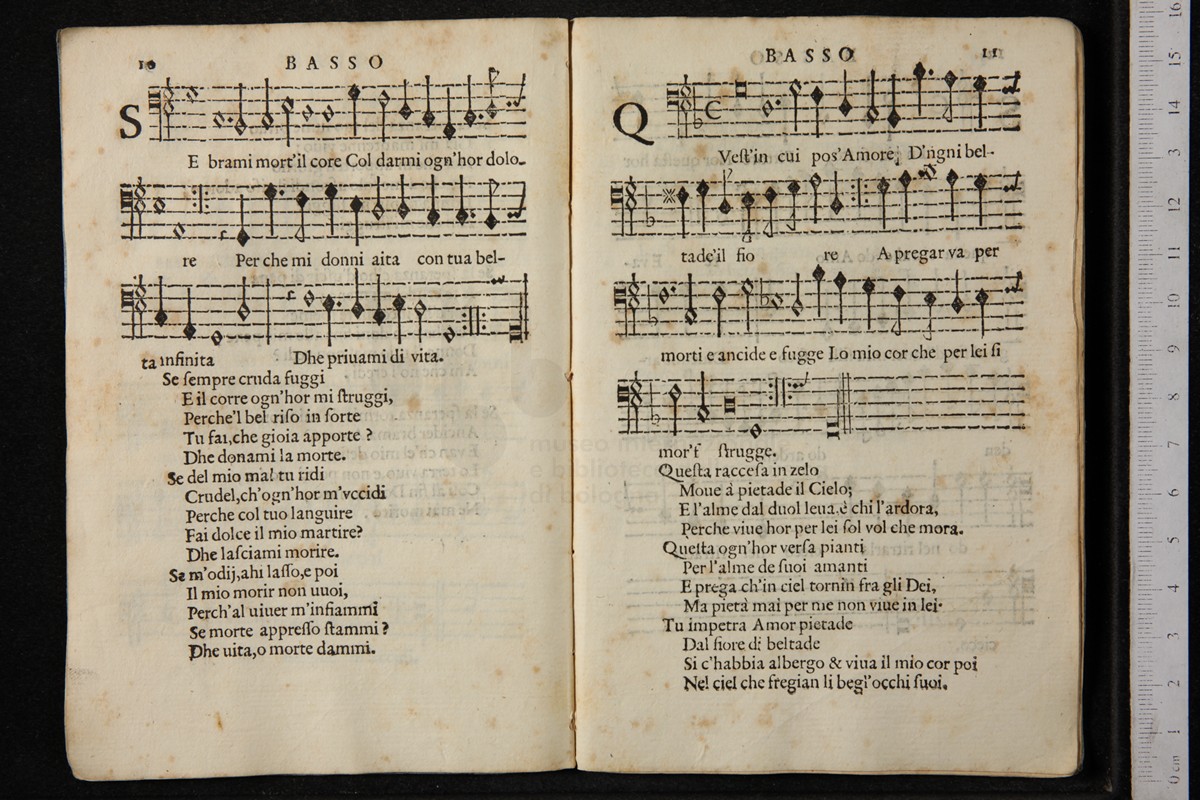 10
BASSO
SE brami mort'il core Col darmi ogn'hor dolo-
re Per che mi donni aita con tua bel-
ta infinita Dhe priuami di vita.
Se sempre cruda fuggi
E il corre ogn'hor mi struggi,
Perche'l bel riso in sorte
Tu fai,che gioia apporte ?
Dhe donami la morte.
Se del mio mal tu ridi
Crudel,ch'ogn'hor m'vccidi
Perche col tuo languire
Fai dolce il mio martire?
Dhe lasciami morire.
Se m'odij,ahi lasso,e poi
Il mio morir non uuoi,
Perch'al uiuer m'infiammi
Se morte appresso stammi ?
Dhe uita,o morte dammi.
BASSO
11
QVest'in cui pos'Amore, D'ngni bel-
tade'il fio re A pregar va per
morti e ancide e fugge Lo mio cor che per lei si
mor'f strugge.
Questa raccesa in zelo
Moue à pietade il Cielo;
E l'alme dal duol leua,è chi l'ardora,
Perche viue hor per lei sol vol che mora.
Questa ogn'hor versa pianti
Per l'alme de suoi amanti
E prega ch'in ciel tornin fra gli Dei,
Ma pietà mai per me non viue in lei.
Tu impetra Amor pietade
Dal fiore di beltade
Si c'habbia albergo & viua il mio cor poi
Nel ciel che fregian li begl'occhi suoi.
museo
e biblioteca
di bologna
0 cm 1 2 3 4 5 6 7 8 9 10 11 12 13 14 15 16